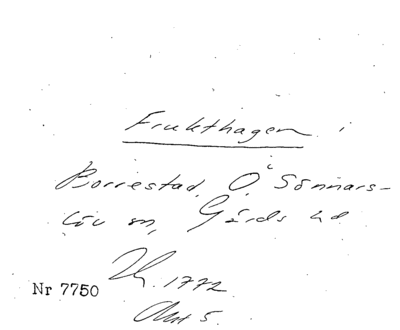 Frukthagen i
Borrestad, Ö Sönnars-
löv sn, Gärds hd
Nr 7750
1772
Akt 5.